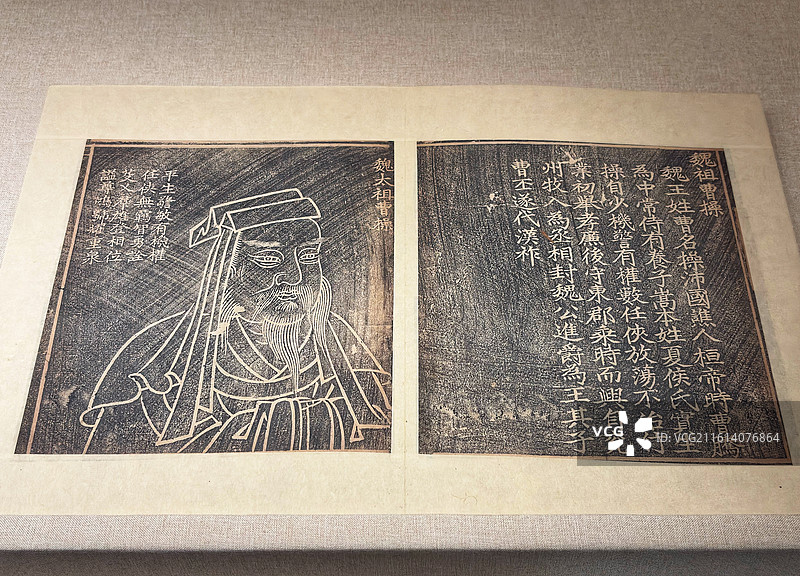 魏祖曹操
魏王姓曹名操沛國譙人桓帝時曹騰
為中常侍有養子嵩本姓夏侯氏實生
操自少機警有權數任俠放蕩不治行
業初舉孝廉後守東郡乘時而興
州牧入為丞相封魏公進爵為王其子
曹丕遂代漢祚
魏太祖曹操
平生敏有機權
任俠無羈智勇
芟乂群雄登相位
謚尊鴻號重泉
VCG
ID:VCG211614076864